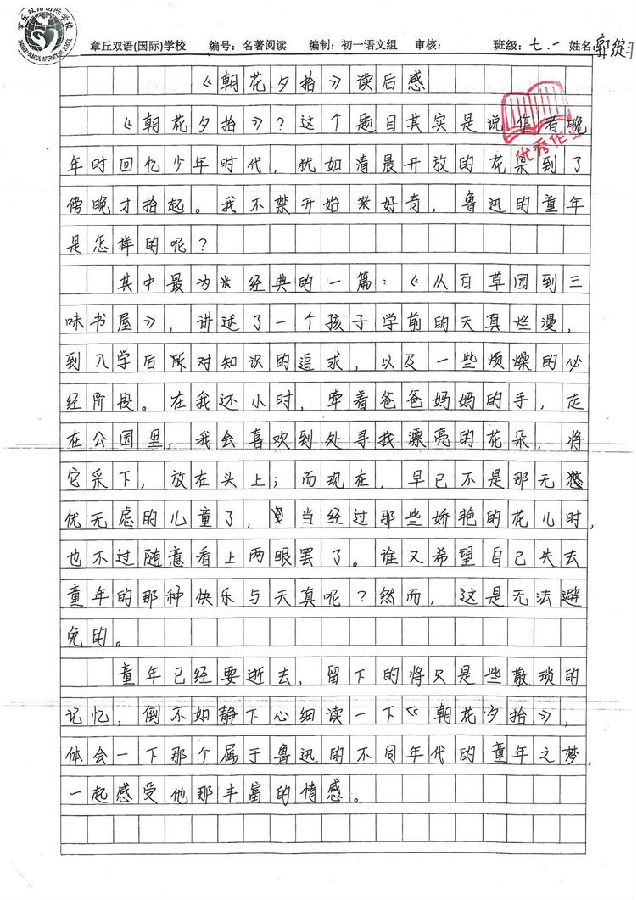 章丘双语(国际)学校 编号：名著阅读 编制：初一语文组 审核： 班级：七.一 姓名：郭
《朝花夕拾》读后感
《朝花夕拾》？这个题目其实是说作者晚
年时回忆少年时代，犹如清晨开放的花朵到了
傍晚才拾起。我不禁开始好奇，鲁迅的童年
是怎样的呢？
其中最为经典的一篇：《从百草园到三
味书屋》，讲述了一个孩子学前的天真烂漫，
到入学后所对知识的追求，以及一些烦燥的必
经阶段。在我还小时，牵着爸爸妈妈的手，走
在公园里，我会喜欢到处寻找漂亮的花朵，将
它采下，放在头上；而现在，早已不是那无
忧无虑的儿童了，当经过那些娇艳的花儿时，
也不过随意看上两眼罢了。谁又希望自己失去
童年的那种快乐与天真呢？然而，这是无法避
免的。
童年已经要逝去，留下的将只是些散琐的
记忆，倒不如静下心细读一下《朝花夕拾》，
体会一下那个属于鲁迅的不同年代的童年之梦，
一起感受他那丰富的情感。
优秀作